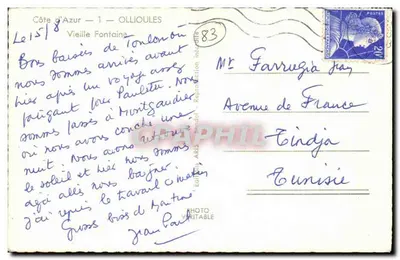 Côte d'Azur — 1 — OLLIOULES
Vieille Fontaine
Le 15/8
83
20
Bons baisers de Toulon où
nous sommes arrivés avant
hier après un voyage assez
fatigant pour Paulette. Nous
sommes passés à Montgaudier
où nous avons couché une
nuit. Nous avons
le soleil et hier nous sommes
déjà allés nous baigner.
j'ai repris le travail ce matin
Grosses bises de Martine
Jean Paul
Mr Farrugia Jean
Avenue de France
Tindja
Tunisie
PHOTO
VERITABLE